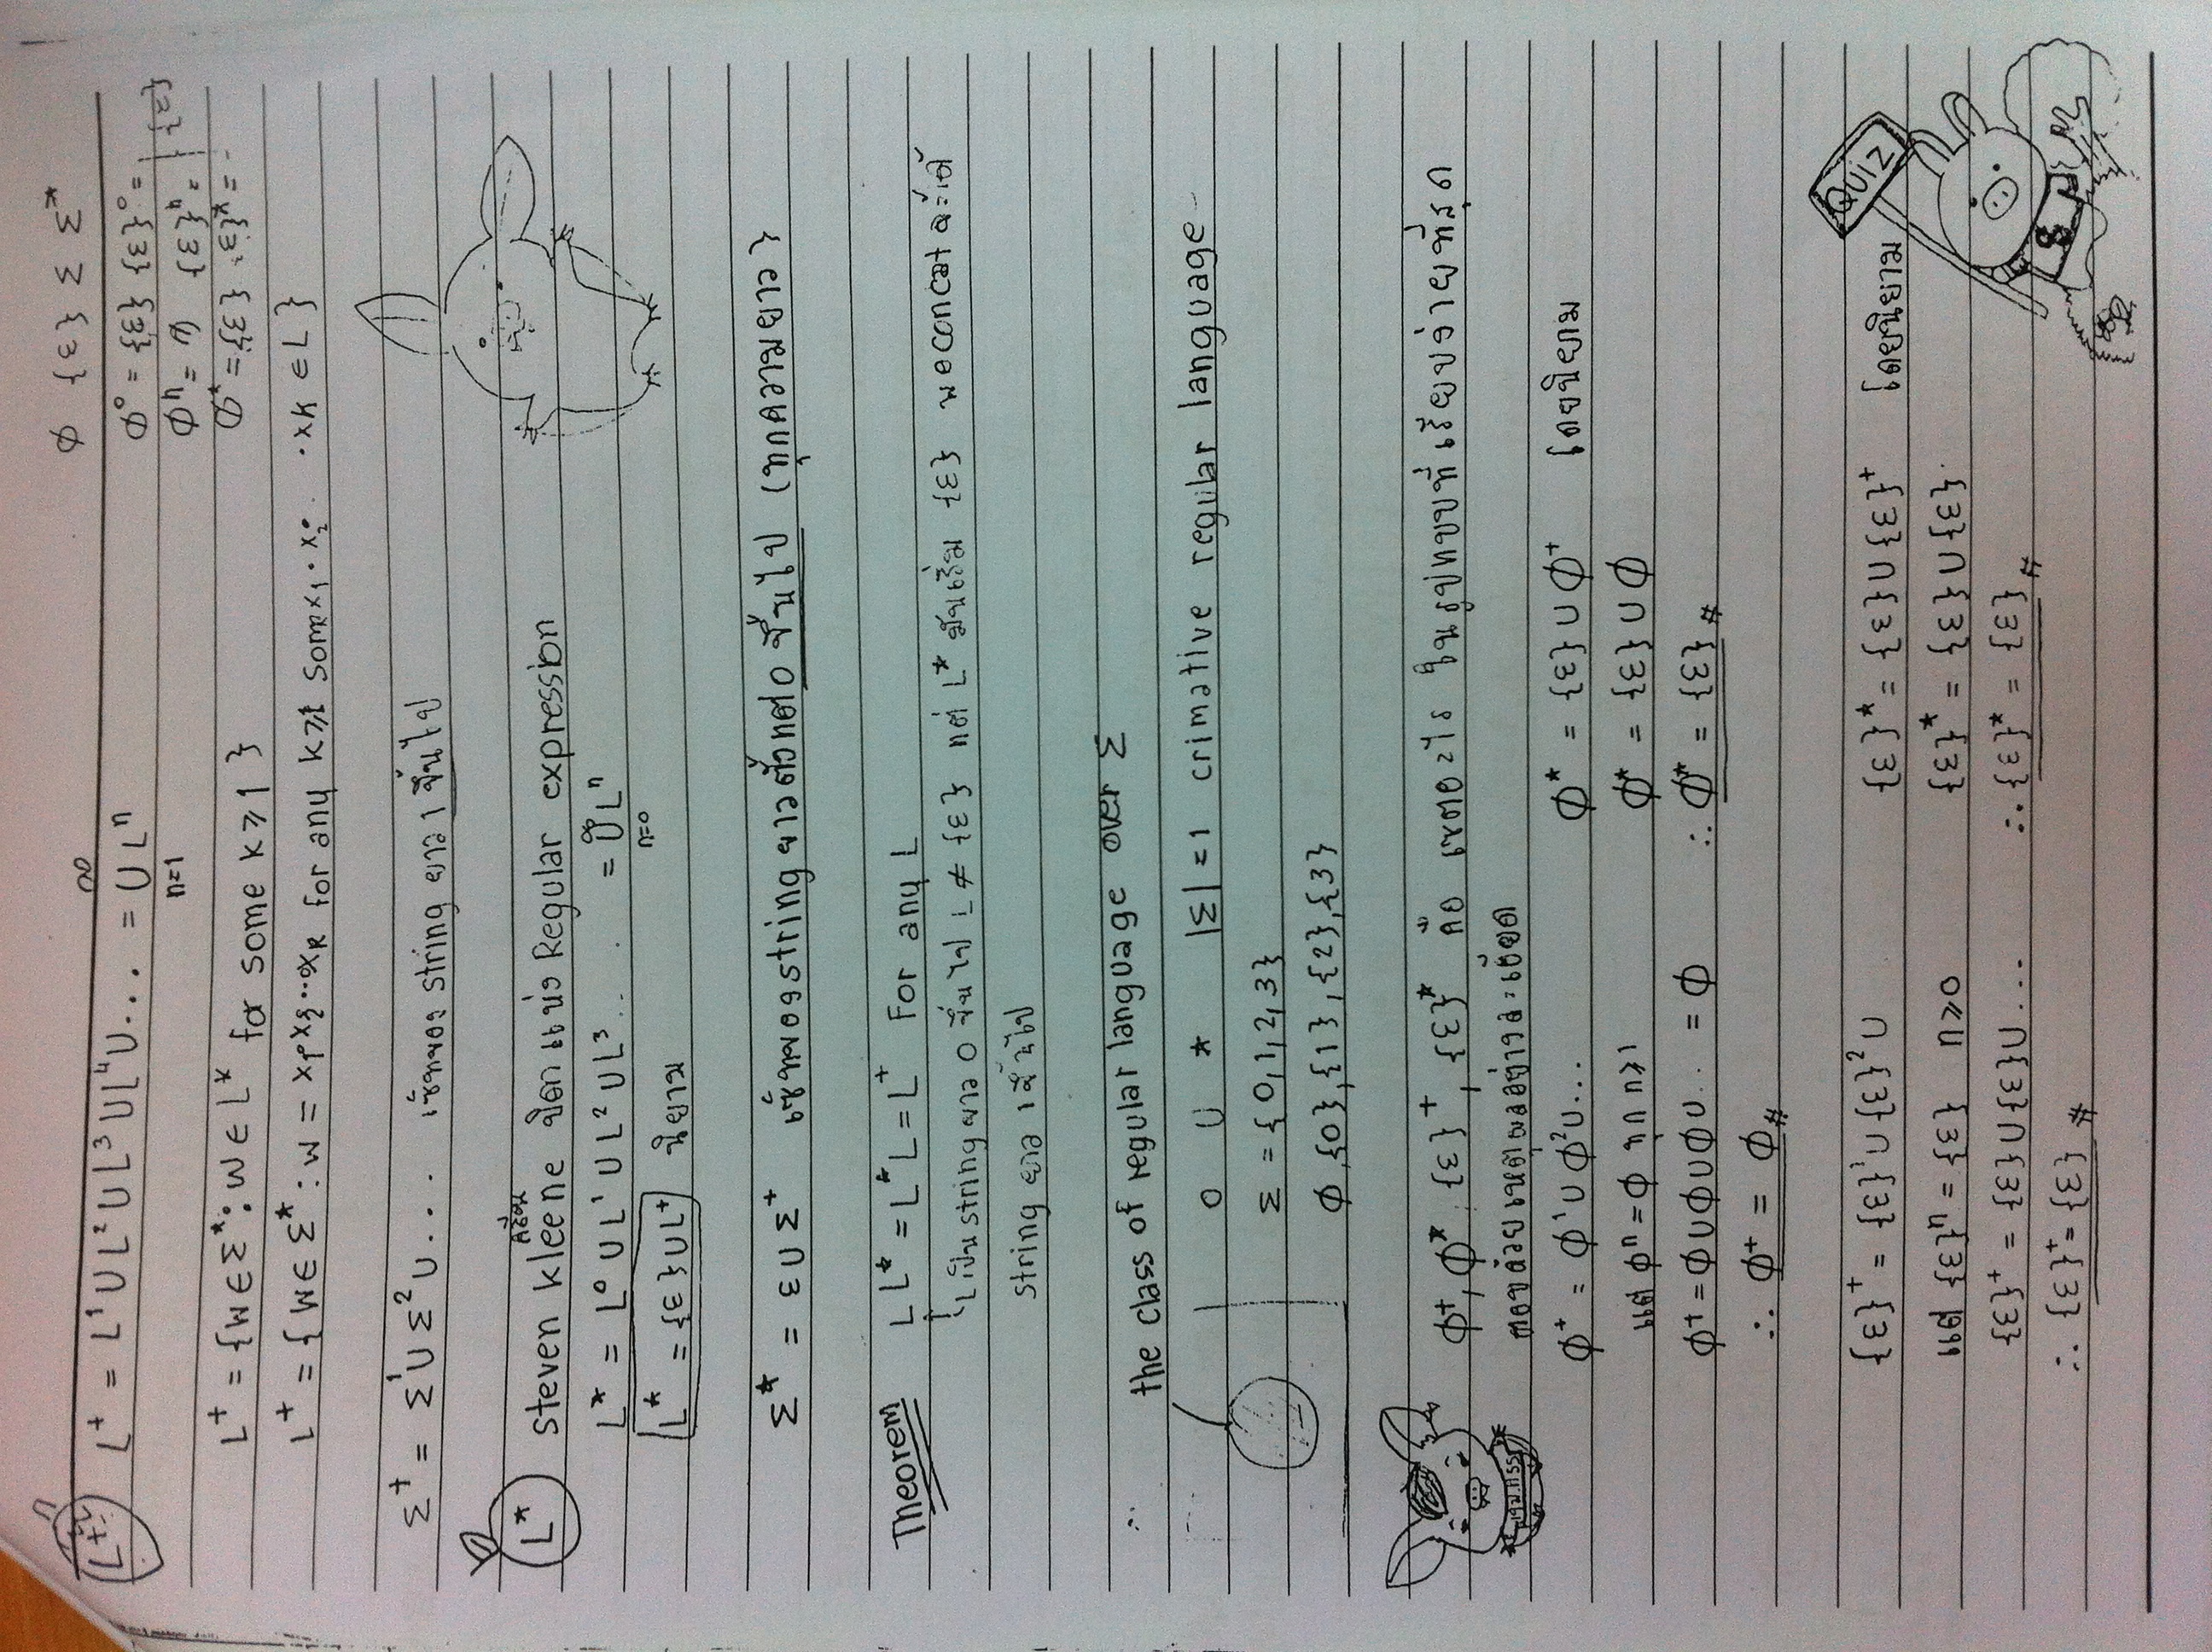 ∅ {ε} Σ Σ*
L⁺ L⁺ = L¹ ∪ L² ∪ L³ ∪ L⁴ ∪ ... = ∞ ∪ n=1 Lⁿ
∅⁰ = {ε} {ε}⁰ =
∅ⁿ = ∅ {ε}ⁿ = {ε}
∅* = {ε} {ε}* =
L⁺ = {w ∈ Σ* : w ∈ L* for some k ≥ 1 }
L⁺ = { w ∈ Σ* : w = x₁∘x₂∘...∘xₖ for any k ≥ 1 some x₁ . x₂. . xk ∈ L }
Σ⁺ = Σ¹ ∪ Σ² ∪ ... เซ็ทของ string ยาว 1 ขึ้นไป
คลีน
L* steven kleene บิดาแห่ง Regular expression
L* = L⁰ ∪ L¹ ∪ L² ∪ L³ .. . = ∞ ∪ n=0 Lⁿ
L* = {ε} ∪ L⁺ นิยาม
Σ* = ε ∪ Σ⁺ เซ็ทของ string ยาวตั้งแต่ 0 ขึ้นไป (ทุกความยาว }
Theorem L L* = L* L = L⁺ For any L
L เป็น string ยาว 0 ขึ้นไป L ≠ {ε} แต่ L* มันเริ่ม {ε} พอ concat จะได้
string ยาว 1 ขึ้นไป
the class of regular language over Σ
o ∪ * |Σ| = 1 crimative regular language
Σ = { 0,1,2,3}
∅, {0}, {1}, {2}, {3}
∅⁺, ∅* {ε}⁺, {ε}* คือ เซตอะไร ในรูปแบบที่เรียบง่ายที่สุด
ตอบด้วยเหตุผลอย่างละเอียด
∅⁺ = ∅¹ ∪ ∅² ∪ ... ∅* = {ε} ∪ ∅⁺ โดยนิยาม
แต่ ∅ⁿ = ∅ ทุก n ≥ 1 ∅* = {ε} ∪ ∅
∅⁺ = ∅ ∪ ∅ ∪ ∅ ∪ .. = ∅ ∴ ∅* = {ε} #
∴ ∅⁺ = ∅ #
QUIZ
{ε}⁺ = {ε}¹ ∪ {ε}² ∪ {ε}* = {ε} ∪ {ε}⁺ โดยนิยาม
แต่ {ε}ⁿ = {ε} n ≥ 0 {ε}* = {ε} ∪ {ε}
{ε}⁺ = {ε} ∪ {ε} ∪ ... ∴ {ε}* = {ε} #
∴ {ε}⁺ = {ε} #